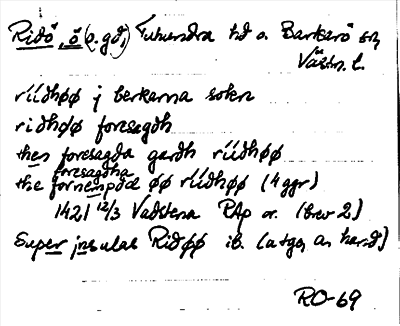 Ridö, ö (o. gd,) Tuhundra hd o. Barkarö sn,
Västm. l.
riidhøø j berkarna soken
ridhøø foresagdh
then foresagda gardh riidhøø
foresagdha
the fornempdæ øø riidhøø (4 ggr)
1421 12/3 Vadstena RAp or. (brev 2)
Super insulas Ridøø ib. (atga, an hand)
RO-69